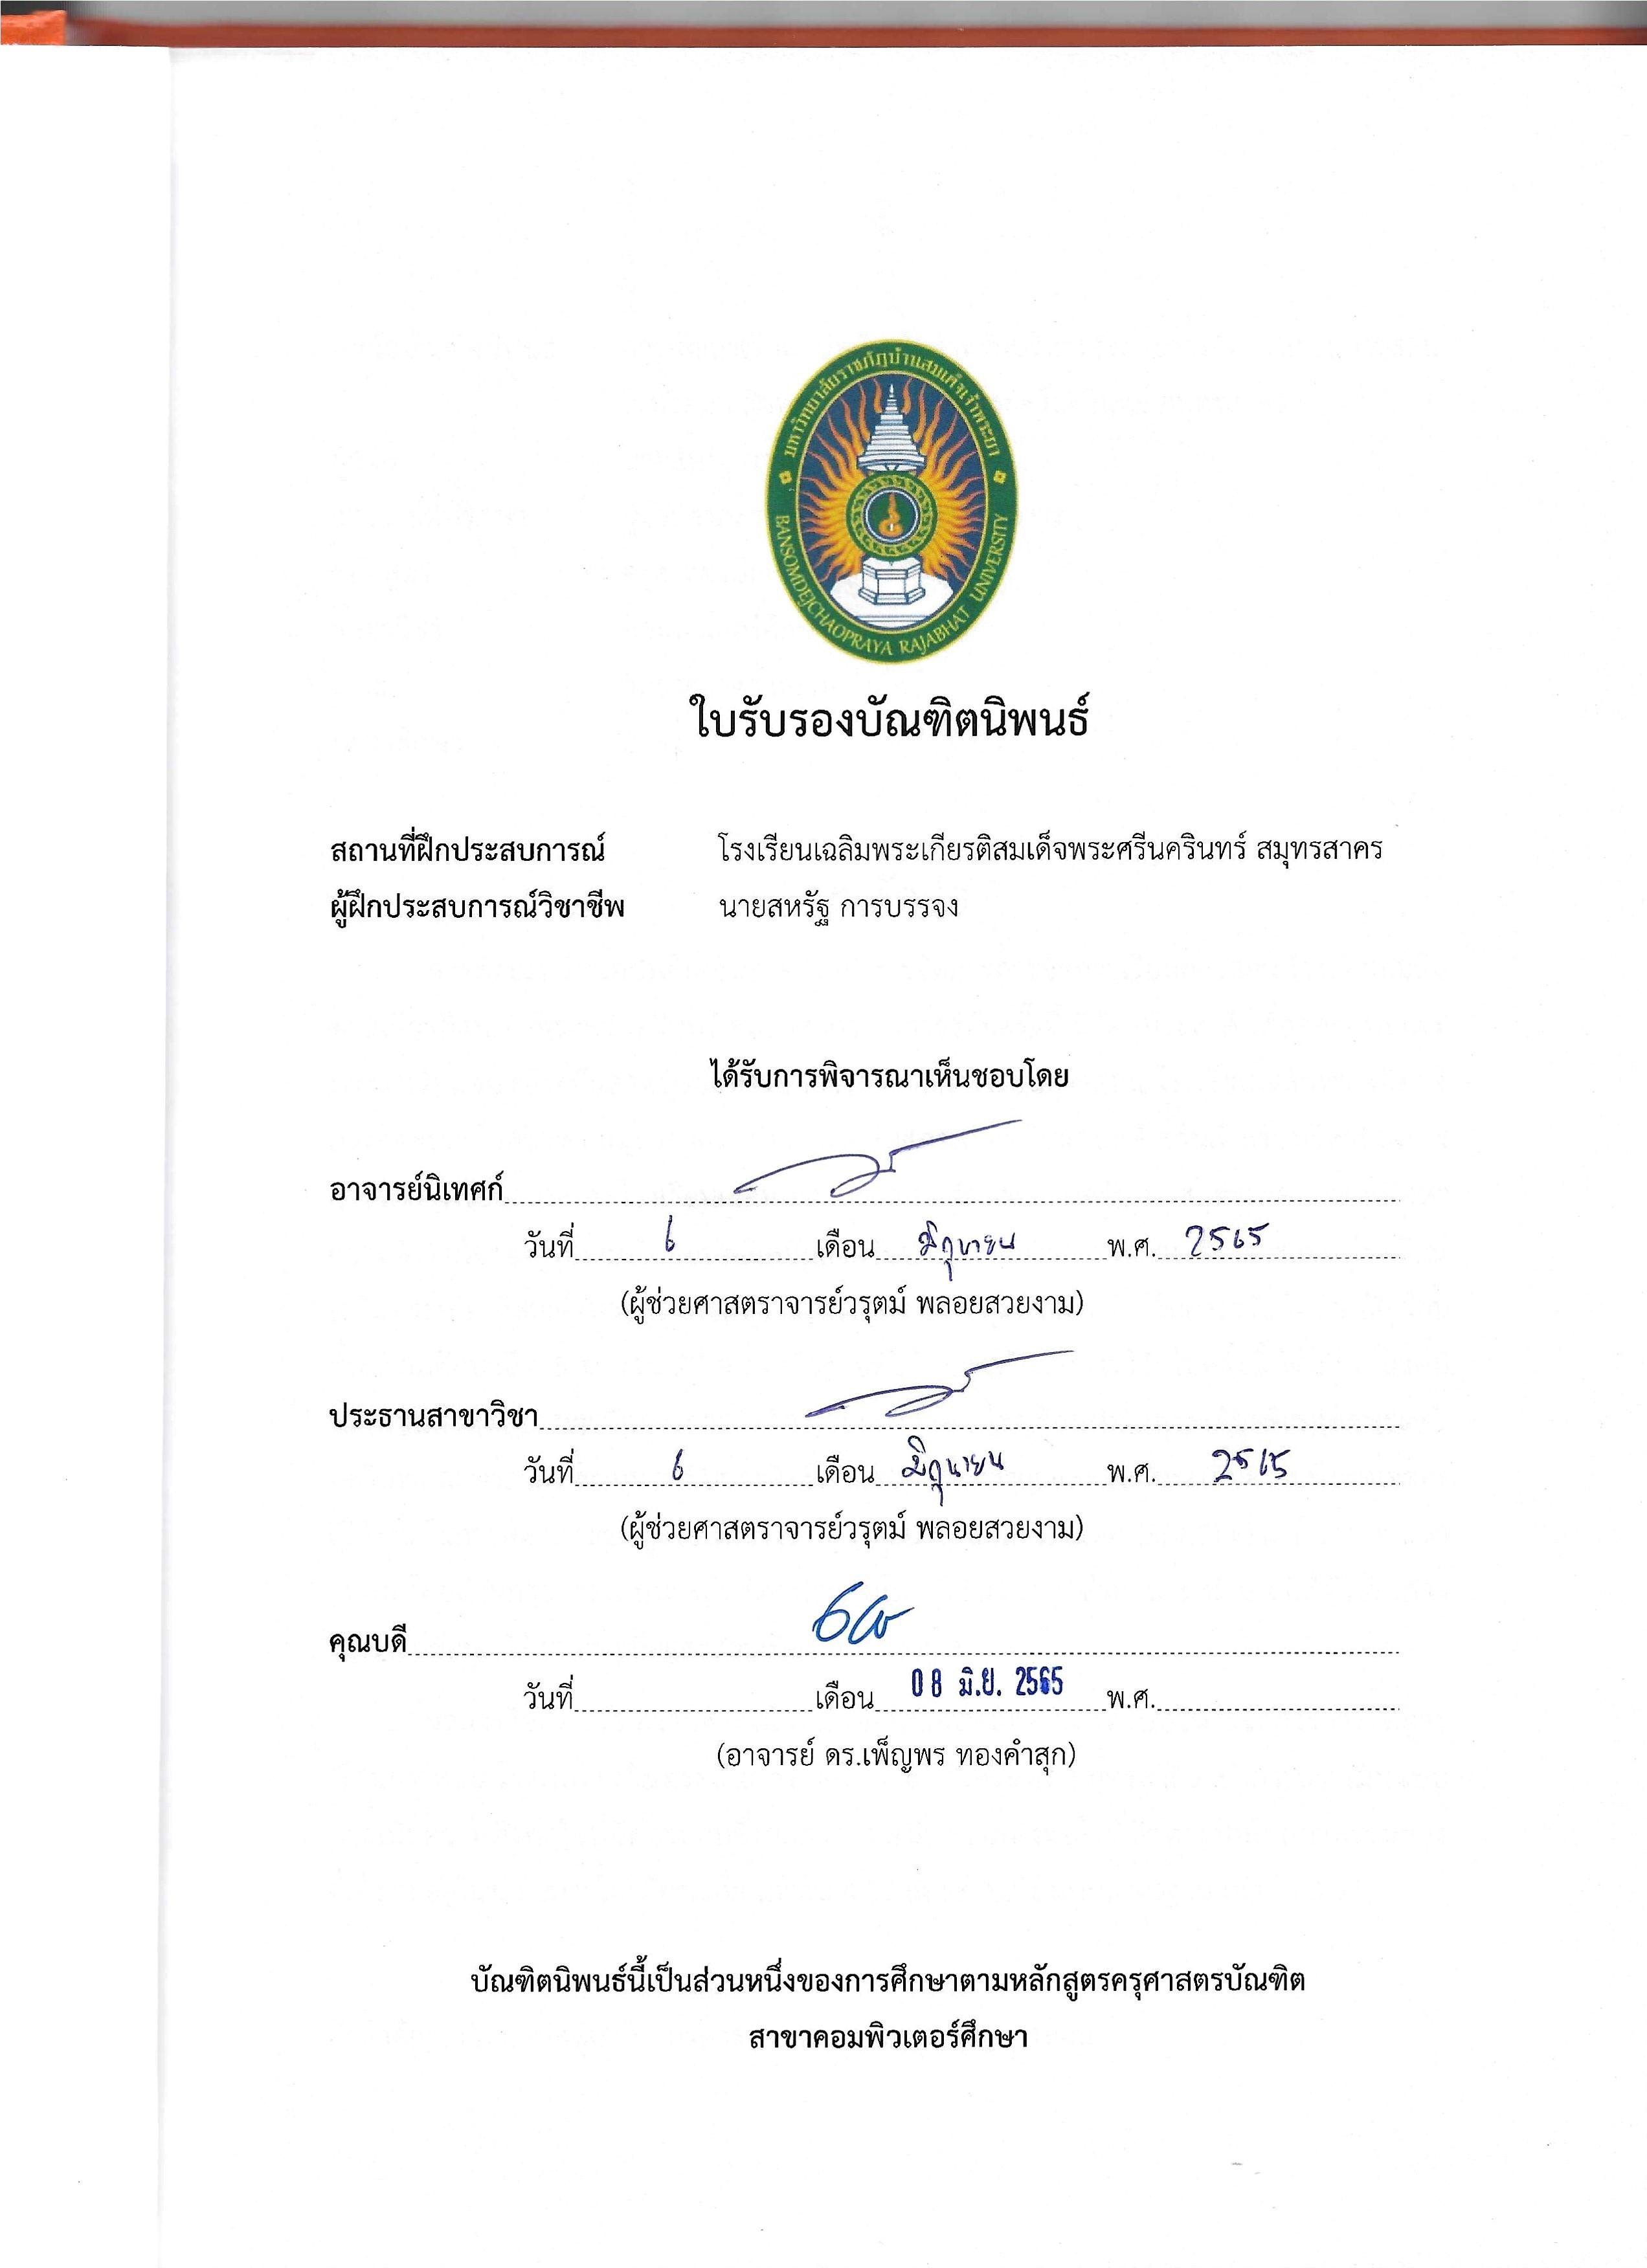 มหาวิทยาลัยราชภัฏบ้านสมเด็จเจ้าพระยา
BANSOMDEJCHAOPRAYA RAJABHAT UNIVERSITY
ใบรับรองบัณฑิตนิพนธ์
สถานที่ฝึกประสบการณ์ โรงเรียนเฉลิมพระเกียรติสมเด็จพระศรีนครินทร์ สมุทรสาคร
ผู้ฝึกประสบการณ์วิชาชีพ นายสหรัฐ การบรรจง
ได้รับการพิจารณาเห็นชอบโดย
อาจารย์นิเทศก์
วันที่ 6 เดือน มิถุนายน พ.ศ. 2565
(ผู้ช่วยศาสตราจารย์วรุตม์ พลอยสวยงาม)
ประธานสาขาวิชา
วันที่ 6 เดือน มิถุนายน พ.ศ. 2565
(ผู้ช่วยศาสตราจารย์วรุตม์ พลอยสวยงาม)
คุณบดี
วันที่ เดือน 08 มิ.ย. 2565 พ.ศ.
(อาจารย์ ดร.เพ็ญพร ทองคำสุก)
บัณฑิตนิพนธ์นี้เป็นส่วนหนึ่งของการศึกษาตามหลักสูตรครุศาสตรบัณฑิต
สาขาคอมพิวเตอร์ศึกษา